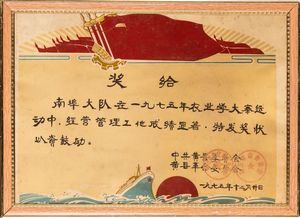 奖给
南埠大队在一九七五年农业学大寨运
动中,经营管理工作成绩显著,特发奖状
以资鼓励。
中共黄县委员会
黄县革命委员会
一九七五年十二月廿日